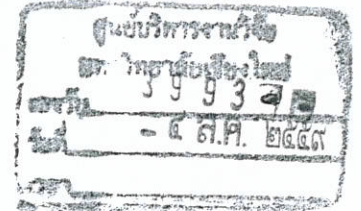 ศูนย์บริหารงานวิจัย
มหาวิทยาลัยเชียงใหม่
เลขรับ 3993
วันที่ - ๔ ส.ค. ๒๕๕๙
เวลา